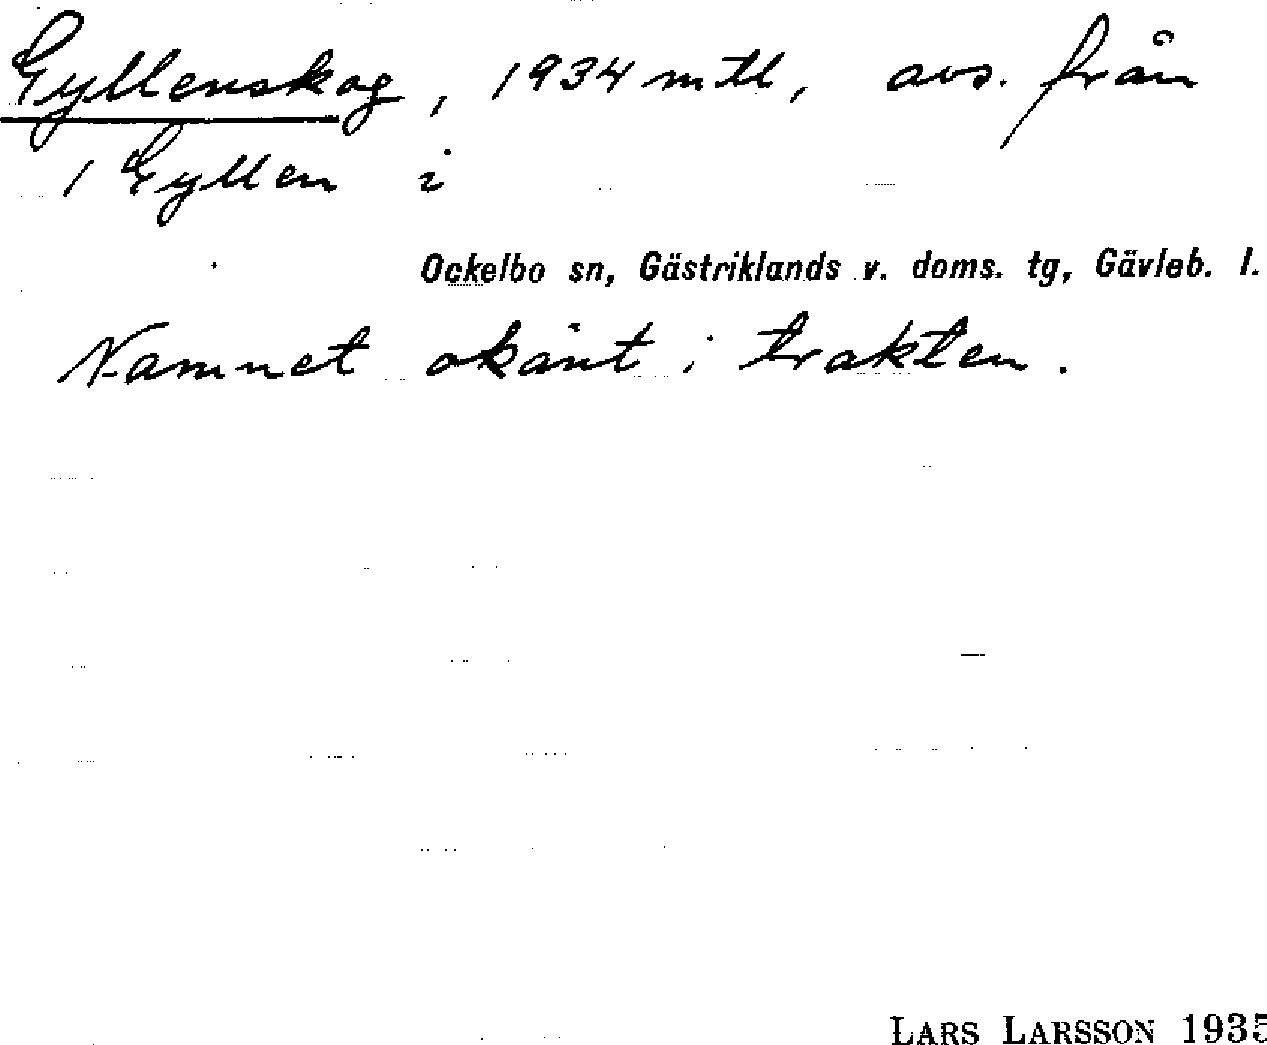 Gyllenskog, 1934 mtl, avs. från
1 Gyllen i
Ockelbo sn, Gästriklands v. doms. tg, Gävleb. l.
Namnet okänt i trakten.
LARS LARSSON 1935